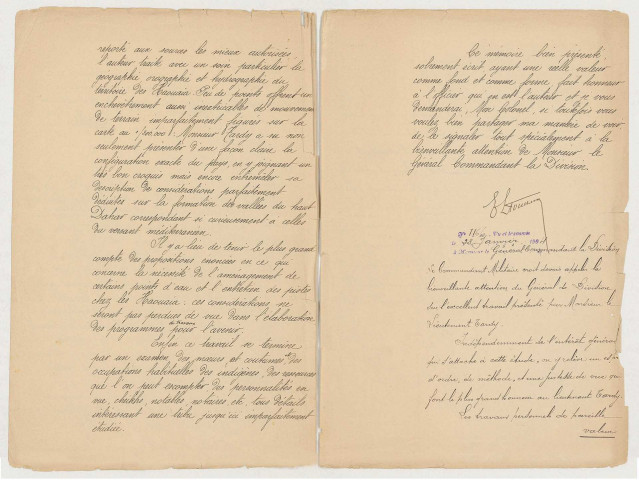 reporté aux sources les mieux autorisées
l'auteur traite avec un soin particulier la
géographie orographie et hydrographie du
territoire des Haouaia Peu de points offrent un
enchevêtrement aussi inextricable de mouvements
de terrain imparfaitement figurés sur la
carte au Monsieur Tardy a su non
seulement présenter d'une façon claire la
configuration exacte du pays, en y joignant un
très bon croquis mais encore entremêler sa
description de considérations parfaitement
déduites sur la formation des vallées du haut
Dahar correspondant si curieusement à celles
du versant méditerranéen.
Il y a lieu de tenir le plus grand
compte des propositions énoncées en ce qui
concerne la nécessité de l'aménagement de
certains points d'eau et l'entretien des pistes
chez les Haouaia : ces considérations ne
seront pas perdues de vue dans l'élaboration
des programmes de travaux pour l'avenir.
Enfin ce travail se termine
par un examen des mœurs et coutumes, des
occupations habituelles des indigènes, des ressources
que l'on peut escompter des personnalités en
vue, cheikhs, notables, notaires, etc. tous détails
intéressant une tribu jusqu'ici imparfaitement
étudiée.
Ce mémoire bien présenté
sobrement écrit ayant une réelle valeur
comme fond et comme forme fait honneur
à l'officier qui en est l'auteur et je vous
demanderai, Mon Colonel, si toutefois vous
voulez bien partager ma manière de voir
de le signaler tout spécialement à la
bienveillante attention de Monsieur le
Général Commandant la Division.
N° Vu et transmis
Janvier
à Monsieur le Général Commandant la Division
Le Commandant Militaire croit devoir appeler la
bienveillante attention du Général de Division
sur l'excellent travail présenté par Monsieur le
Lieutenant Tardy.
Indépendamment de l'intérêt général
qui s'attache à cette étude, on y relève un esprit
d'ordre, de méthode, et une justesse de vues qui
font le plus grand honneur au lieutenant Tardy.
Les travaux personnels de pareille
valeur